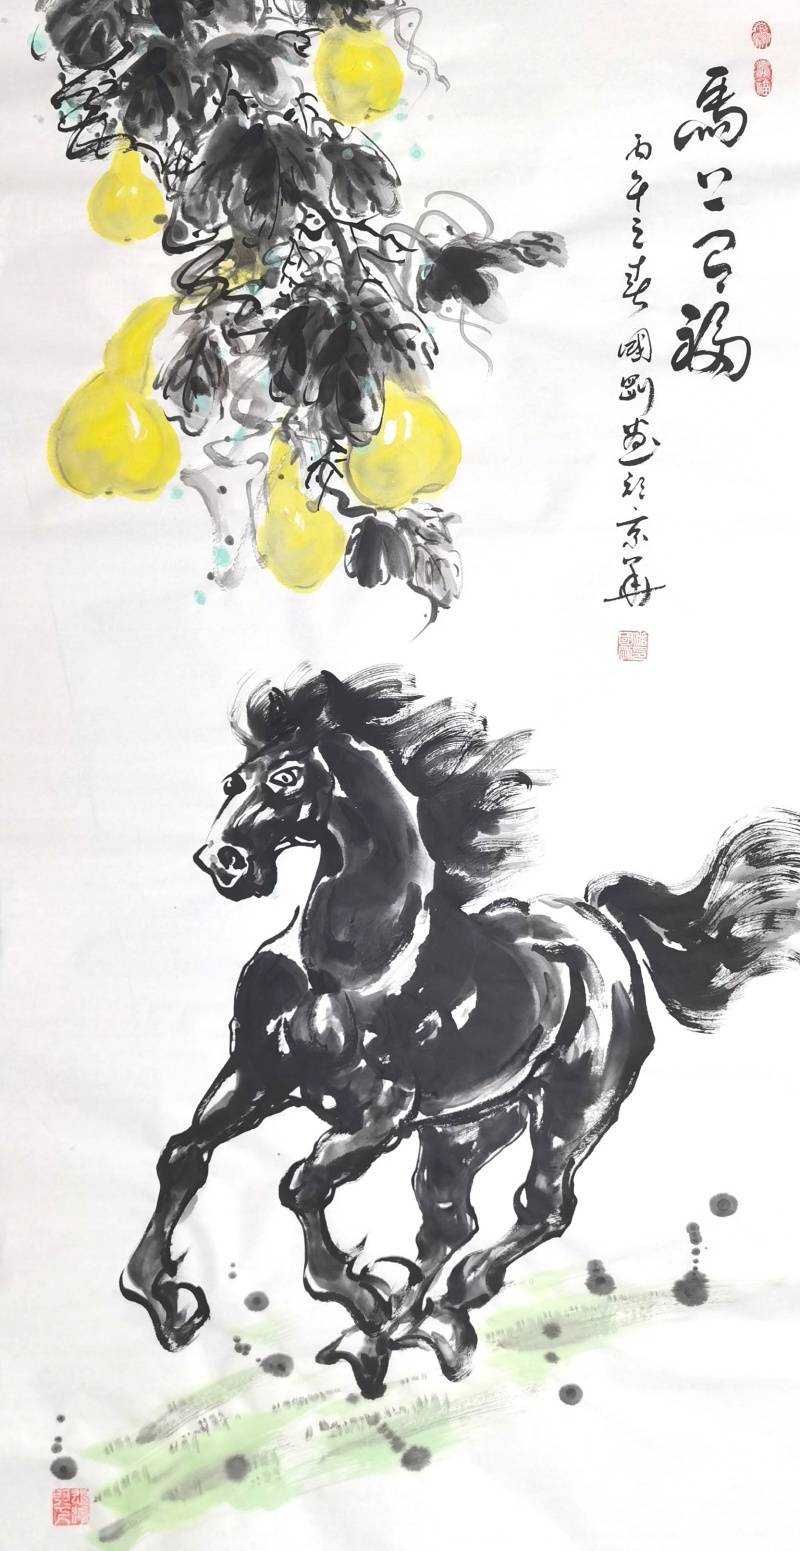 馬上有福
丙午之春國剛畫於京華